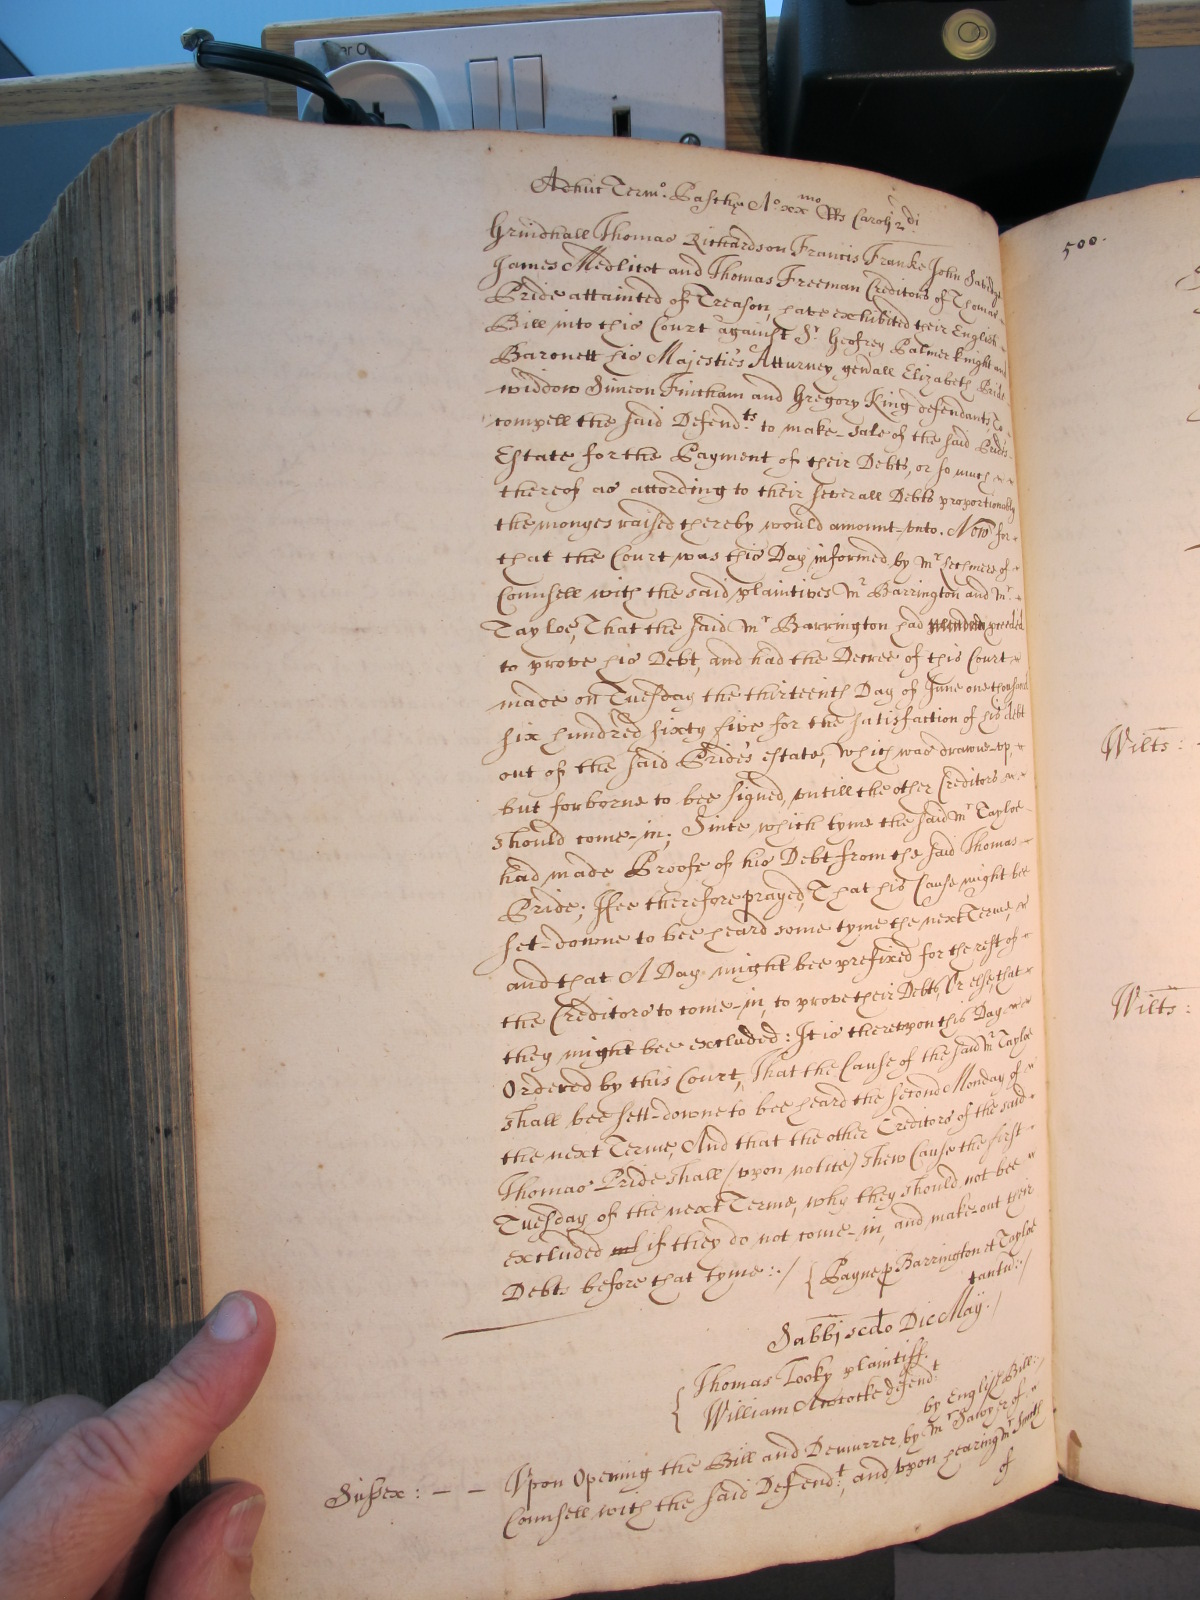 Adhuc Term<sup>o</sup>. Paschę A<sup>o</sup> xx<sup>mo</sup> R<sup>s</sup> Caroli 2<sup>di</sup>
Grindhall Thomas Richardson Francis Franke John
James Medlicot and Thomas Freeman Creditors of Thomas
Pride attainted of Treason, have exhibited their English
Bill into this Court against S<sup>r</sup> Geofrey Palmer Knight and
Baronett his Majesties Atturney genall Elizabeth Pride
widdow Simeon Fincham and Gregory King defendants, To
compell the said Defend<sup>ts</sup> to make-sale of the said Prides
Estate for the Payment of their Debts, or so much
thereof as according to their severall Debts proportionably
the monyes raised thereby would amount-vnto. Now for
that the Court was this Day informed by M<sup>r</sup> Lechmere of
Counsell with the said plaintives M<sup>r</sup> Barrington and M<sup>r</sup>
Tayloe, That the said M<sup>r</sup> Barrington had
to prove his Debt, and had the Decree of this Court
made on Tuesday the thirteenth Day of June one thousand
six hundred sixty five for the satisfaction of his debt
out of the said Prides estate, which was drawne-vp,
but forborne to bee signed, vntill the other Creditors
should come-in; Since which tyme the said M<sup>r</sup> Tayloe
had made Proofe of his Debt from the said Thomas
Pride; Hee therefore prayed, That his Cause might bee
set-downe to bee heard some tyme the next Terme,
and that A Day might bee prefixed for the rest of
the Creditors to come-in, to prove their Debts, Or else, that
they might bee excluded: It is therevpon this Day
Ordered by this Court, That the Cause of the said M<sup>r</sup> Tayloe
shall bee sett-downe to bee heard the second Monday of
the next Terme, And that the other Creditors of the said
Thomas Pride shall (vpon notice) shew Cause the first
Tuesday of the next Terme, why they should not bee
excluded if they do not come-in, and make-out their
Debts before that tyme :./ { Payne p Barrington et Tayloe
tantu:/
Sabbi scdo Die Maij./
{ Thomas Tooky plaintiff.
William defend<sup>t</sup>
by English Bill:/
Sussex : – – Vpon Opening the Bill and Demurrer, by M<sup>r</sup> Sawyer of
Counsell with the said Defend<sup>t</sup>, and vpon hearing M<sup>r</sup> Smith
of
500.
Wilts :
Wilts :